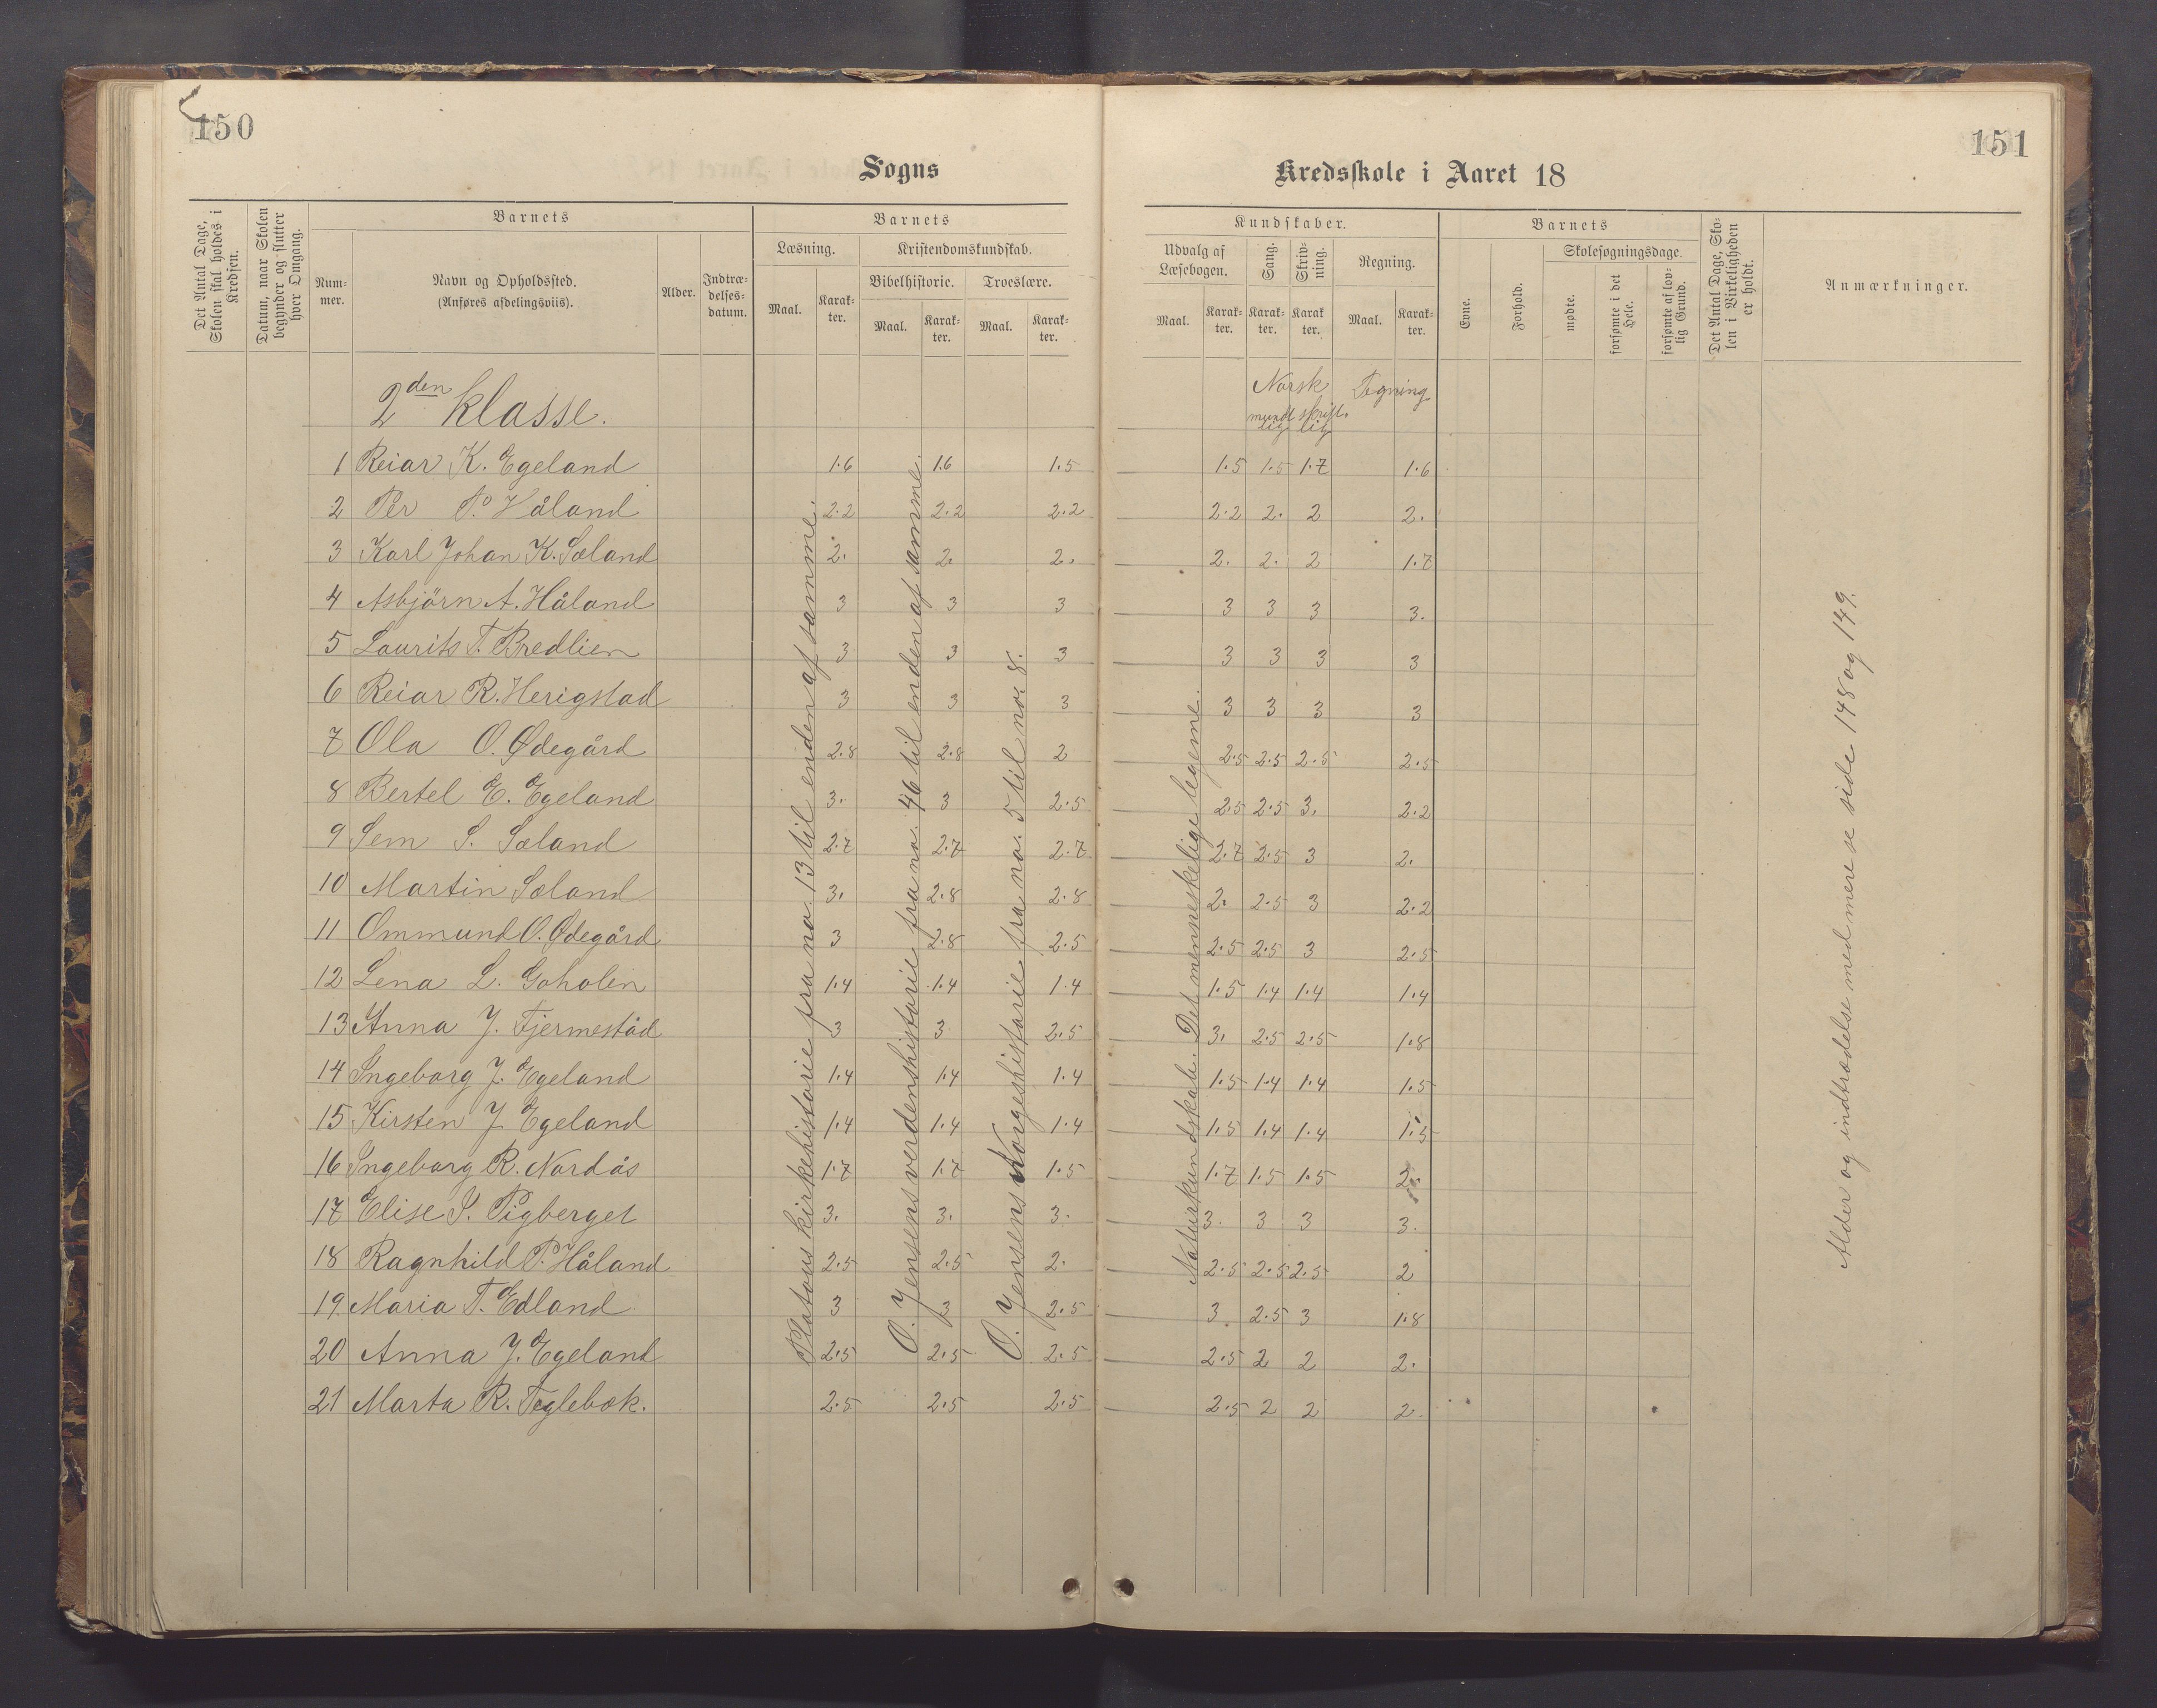 150
Sogns
Det Antal Dage, Skolen skal holdes i Kredsen.
Datum, naar Skolen begynder og slutter hver Omgang.
Barnets
Num-mer.
Navn og Opholdssted.
(Anføres afdelingsviis).
Alder.
Indtræ-delses-datum.
Barnets
Læsning.
Kristendomskundskab.
Bibelhistorie.
Troeslære.
Maal.
Karak-ter.
Maal.
Karak-ter.
Maal.
Karak-ter.
2den klasse.
1 Reiar K. Egeland 1.6 1.6 1.5
2 Per P. Håland 2.2 2.2 2.2
3 Karl Johan K. Sæland 2. 2. 2.
4 Asbjörn A. Håland 3 3 3
5 Laurits T. Bredlien 3 3 3
6 Reiar R. Herigstad 3 3 3
7 Ola O. Ødegård 2.8 2.8 2
8 Bertel E. Egeland 3. 3 2.5
9 Sem S. Sæland 2.7 2.7 2.7
10 Martin Sæland 3. 2.8 2.8
11 Ommund O. Ødegård 3 2.8 2.5
12 Lena L. Goholen 1.4 1.4 1.4
13 Anna J. Fjermestad 3 3 2.5
14 Ingeborg J. Egeland 1.4 1.4 1.4
15 Kirsten J Egeland 1.4 1.4 1.4
16 Ingeborg R. Nordås 1.7 1.7 1.5
17 Elise S. Pigberget 3. 3. 3.
18 Ragnhild P. Håland 2.5 2.5 2.
19 Maria T. Edland 3 3 2.5
20 Anna J. Egeland 2.5 2.5 2.5
21 Marta R. Teglebæk. 2.5 2.5 2.5
Platous kirkehistorie fra no. 13 til enden af samme.
O. Jensens verdenshistorie fra no. 46 til enden af samme.
O. Jensens Norgeshistorie fra no. 5 til no. 8.
151
Kredsskole i Aaret 18
Kundskaber.
Udvalg af Læsebogen.
Sang.
Skriv-ning.
Regning.
Maal.
Karak-ter.
Karak-ter.
Karak ter.
Maal.
Karak-ter.
Barnets
Evne.
Forhold.
Skolesøgningsdage.
mødte.
forsømte i det Hele.
forsømte af lov-lig Grund.
Det Antal Dage, Sko-len i Virkeligheden er holdt.
Anmærkninger.
Norsk Tegning
mundtlig skriftlig
1.5 1.5 1.7 1.6
2.2 2. 2 2.
2. 2. 2 1.7
3 3 3 3.
3 3 3 3
3 3 3 3
2.5 2.5 2.5 2.5
2.5 2.5 3. 2.2
2.7 2.5 3 2.
2. 2.5 3 2.2
2.5 2.5 3 2.5
1.5 1.4 1.4 1.4
3. 2.5 2.5 1.8
1.5 1.4 1.4 1.5
1.5 1.4 1.4 1.5
1.7 1.5 1.5 2.
3. 3 3 3.
2.5 2.5 2.5 2
3. 2.5 3 1.8
2.5 2 2 2.
2.5 2 2 2.
Naturkundskab. Det menneskelige legeme.
Alder og indtrædelse med mere se side 148 og 149.